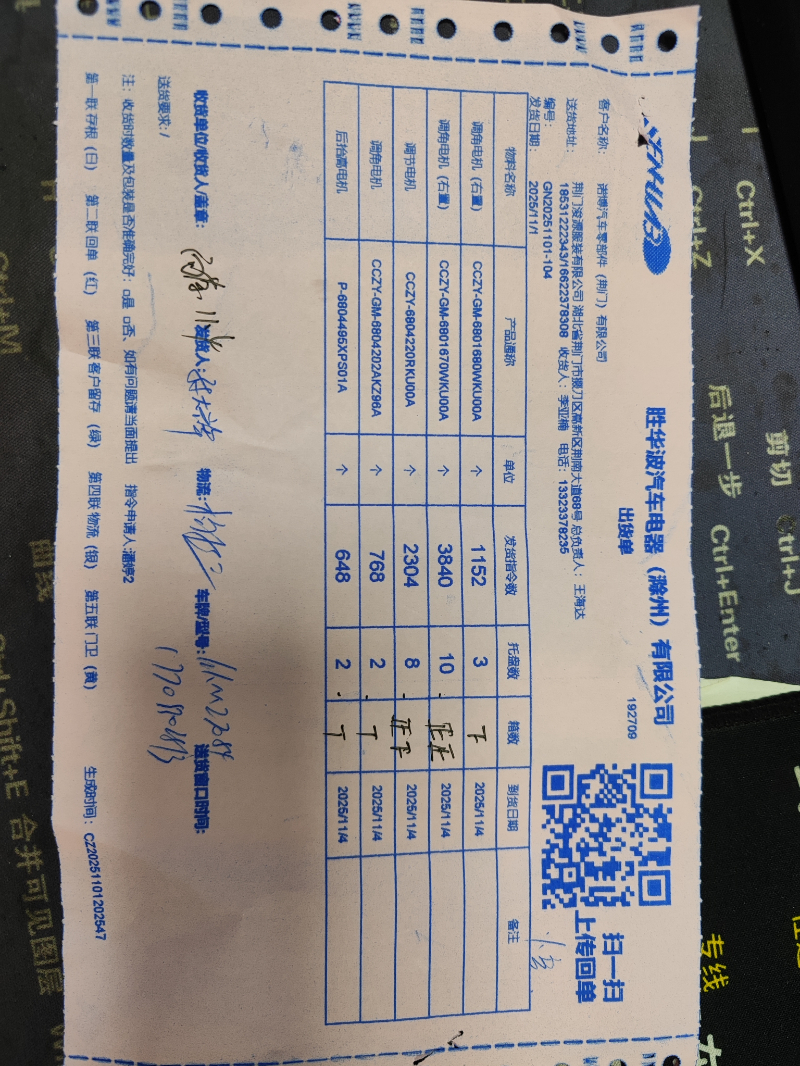 SENHUAB
胜华波汽车电器（滁州）有限公司
出货单
192709
扫一扫
上传回单
客户名称： 诺博汽车零部件（荆门）有限公司
送货地址： 荆门浚源服装有限公司 湖北省荆门市掇刀区高新区荆南大道68号 总负责人：王海达
18531222343/16622378308 收货人：李亚楠 电话：13323378235
编号： GN20251101-104
发货日期： 2025/11/1
物料名称 产品通称 单位 发货指令数 托盘数 箱数 到货日期 备注
调角电机（右置） CCZY-GM-6801680WKU00A 个 1152 3 2025/11/4
调角电机（右置） CCZY-GM-6801670WKU00A 个 3840 10 2025/11/4
调节电机 CCZY-6804220RKU00A 个 2304 8 2025/11/4
调角电机 CCZY-GM-6804202AKZ96A 个 768 2 2025/11/4
后抬高电机 P-6804495XPS01A 个 648 2 2025/11/4
收货单位/收货人/盖章： 发货人： 物流： 车牌/型号： 送货窗口时间：
送货要求：/
注：收货时数量及包装是否准确完好：□是 □否、如有问题请当面提出 指令申请人:潘婷2
第一联 存根（白） 第二联 回单（红） 第三联 客户留存（绿） 第四联 物流（银） 第五联 门卫（黄） 生成时间：CZ20251101202547
Ctrl+X
Ctrl+Z
后退一步
剪切
Ctrl+J
Ctrl+Enter
Ctrl+M
曲线
Ctrl+Shift+E
合并可见图层
专线